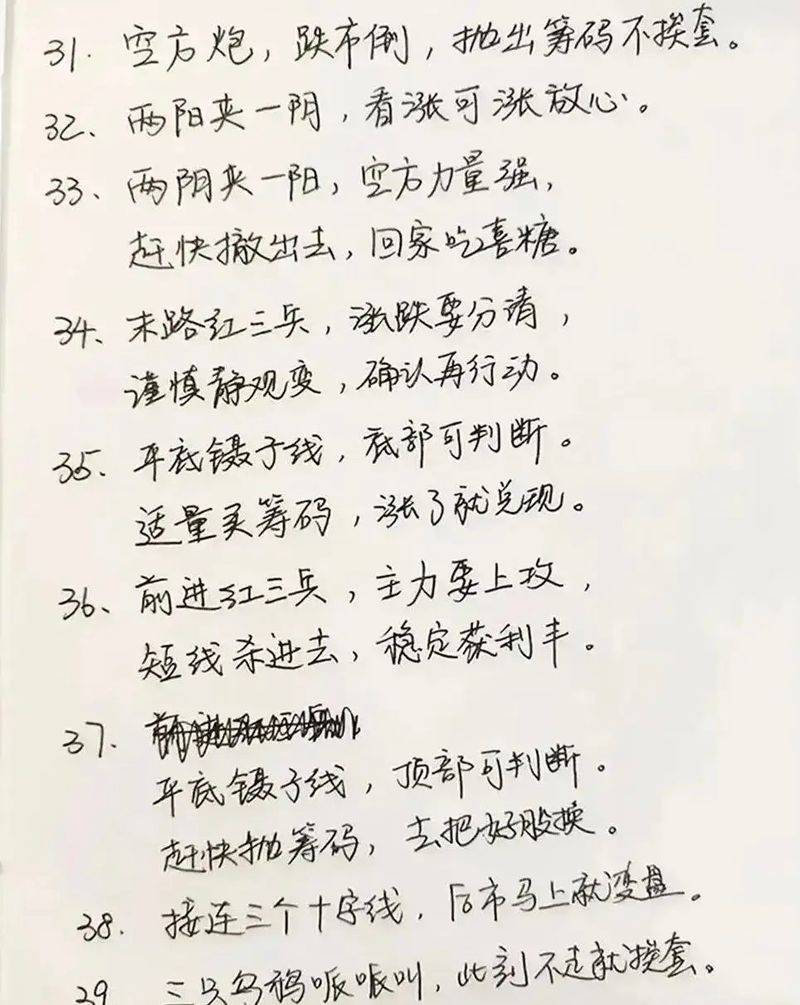 31. 空方炮，跌市倒，抛出筹码不挨套。
32、两阳夹一阴，看涨可涨放心。
33、两阴夹一阳，空方力量强，
赶快撤出去，回家吃喜糖。
34、末路红三兵，涨跌要分请，
谨慎静观变，确认再行动。
35、平底镊子线，底部可判断。
适量买筹码，涨了就兑现。
36、前进红三兵，主力要上攻，
短线杀进去，稳定获利丰。
37.
平底镊子线，顶部可判断。
赶快抛筹码，去把好股换。
38. 接连三个十字线，后市马上就变盘。
39 三只乌鸦哌哌叫，此刻不走就挨套。